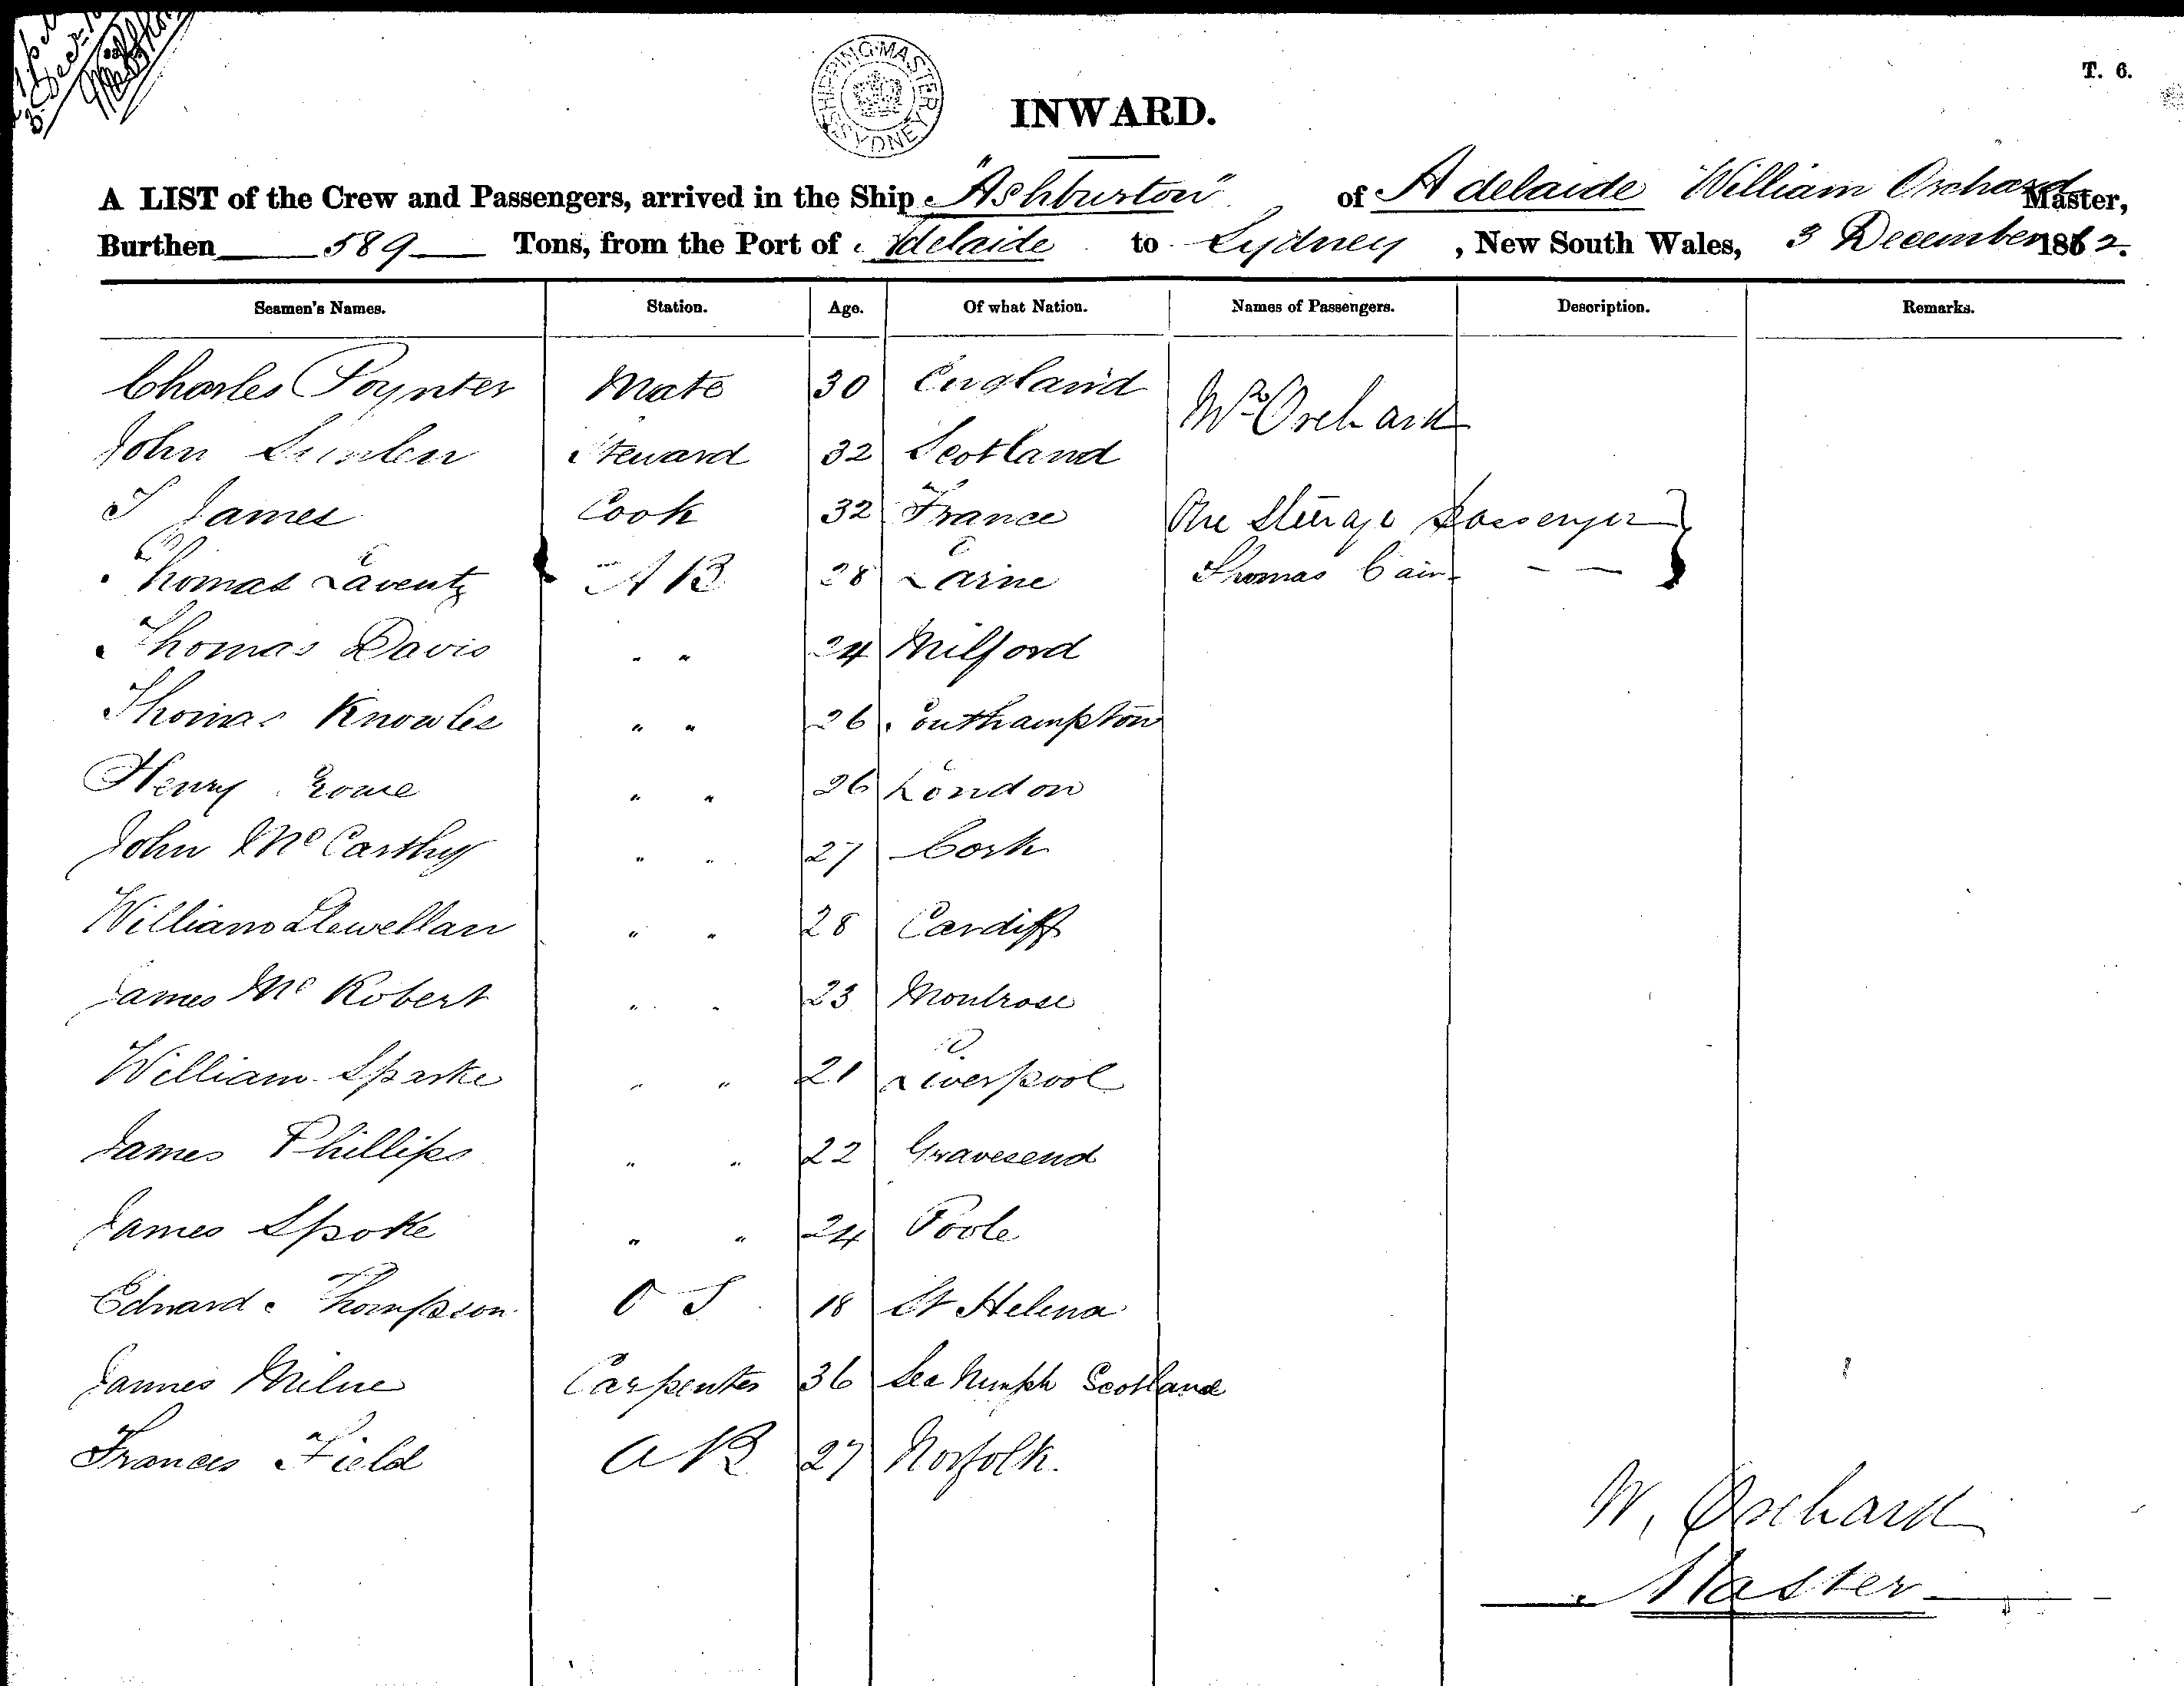 T. 6.
SHIPPING MASTER SYDNEY
INWARD.
A LIST of the Crew and Passengers, arrived in the Ship "Ashburton" of Adelaide William Orchard Master,
Burthen 589 Tons, from the Port of Adelaide to Sydney, New South Wales, 3 December 1862.
Seamen's Names. Station. Age. Of what Nation. Names of Passengers. Description. Remarks.
Charles Poynter Mate 30 England
Mrs Orchard
John Steward 32 Scotland
J James Cook 32 France One Steerage Passenger
Thomas Laventz A B 28 Larne Thomas Cain — —
Thomas Davis " " 24 Milford
Thomas Knowles " " 26 Southampton
Henry Rowe " " 26 London
John McCarthy " " 27 Cork
William Llewellan " " 28 Cardiff
James Mc Robert " " 23 Montrose
William Sparke " " 21 Liverpool
James Phillips " " 22 Gravesend
James Spoke " " 24 Poole
Edward Thompson O S 18 St Helena
James Milne Carpenter 36 Scotland
Frances Field A B 27 Norfolk.
W. Orchard
Master